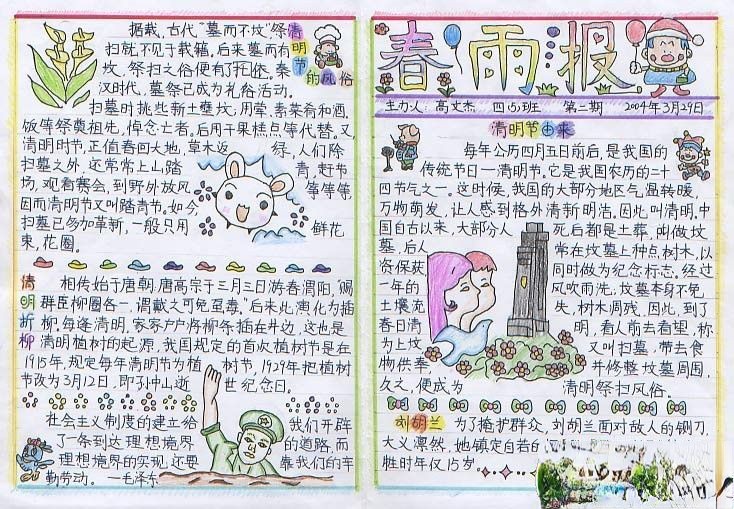 据载,古代“墓而不坟”,祭
扫就不见于载籍,后来墓而有
坟,祭扫之俗便有了托依,秦
汉时代,墓祭已成为礼俗活动。
清明节的风俗
扫墓时挑些新土壅坟,用荤、素菜肴和酒、
饭等祭奠祖先,悼念亡者。后用果糕点等代替,又
清明时节,正值春回大地,草木返绿,人们除
扫墓之外,还常常上山踏青,赶节
场,观看赛会,到野外放风筝等等,
因而清明节又叫踏青节。如今,
扫墓已多加革新,一般只用鲜花
束,花圈。
清明折柳
相传始于唐朝,唐高宗于三月三日游春渭阳,“赐
群臣柳圈各一,谓戴之可免虿毒,”后来此演化为插
柳,每逢清明,家家户户将柳条插在井边,这也是
清明植树的起源,我国规定的首次植树节是在
1915年,规定每年清明节为植树节,1929年把植树
节改为3月12日,即孙中山逝世纪念日。
社会主义制度的建立给我们开辟
了一条到达理想境界的道路,而
理想境界的实现,还要靠我们的辛
勤劳动。—毛泽东
春雨报
主办人:高文杰 四(5)班 第二期 2009年3月29日
清明节由来
每年公历四月五日前后,是我国的
传统节日—清明节。它是我国农历的二十
四节气之一。这时候,我国的大部分地区气温转暖,
万物萌发,让人感到格外清新明洁。因此叫清明。中
国自古以来,大部分人死后都是土葬,叫做坟
墓,后人常在坟墓上种点树木,以
资保获同时做为纪念标志。经过
一年的风吹雨洗,坟墓本身不免
土壤流失,树木凋残,因此,到了
春日清明,看人前去看望,称
为上坟又叫扫墓,带去食
物供奉,并修整坟墓周围,
久之,便成为清明祭扫风俗。
刘胡兰
为了掩护群众,刘胡兰面对敌人的铡刀,
大义凛然,她镇定自若的
胜时年仅15岁